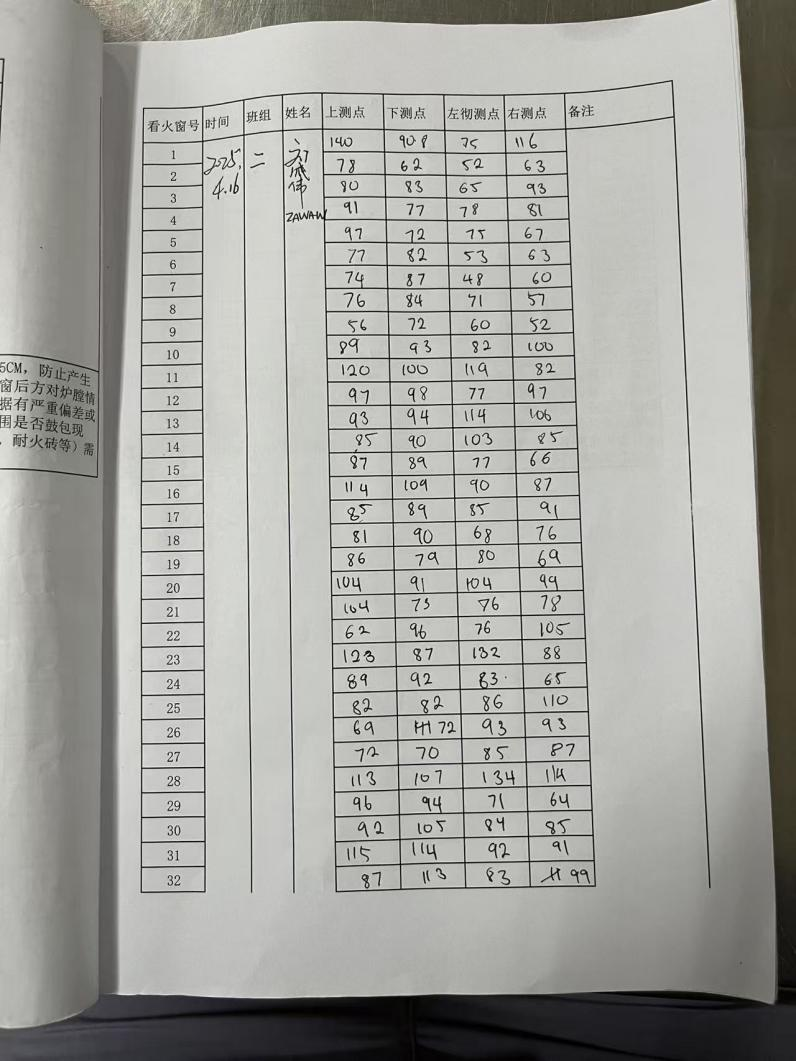 看火窗号 时间 班组 姓名 上测点 下测点 左彻测点 右测点 备注
1 2025. 二 刘 140 90.8 75 116
2 4.16 成伟 78 62 52 63
3 80 83 65 93
4 ZAWAW 91 77 78 81
5 97 72 75 67
6 77 82 53 63
7 74 87 48 60
8 76 84 71 57
9 56 72 60 52
10 89 93 82 100
11 120 100 119 82
12 97 98 77 97
13 93 94 114 106
14 85 90 103 85
15 87 89 77 66
16 114 109 90 87
17 85 89 85 91
18 81 90 68 76
19 86 79 80 69
20 104 91 104 99
21 104 73 76 78
22 62 96 76 105
23 123 87 132 88
24 89 92 83. 65
25 82 82 86 110
26 69 72 93 93
27 72 70 85 87
28 113 107 134 114
29 96 94 71 64
30 92 105 84 85
31 115 114 92 91
32 87 113 83 99
5CM，防止产生
窗后方对炉膛情
据有严重偏差或
围是否鼓包现
，耐火砖等）需